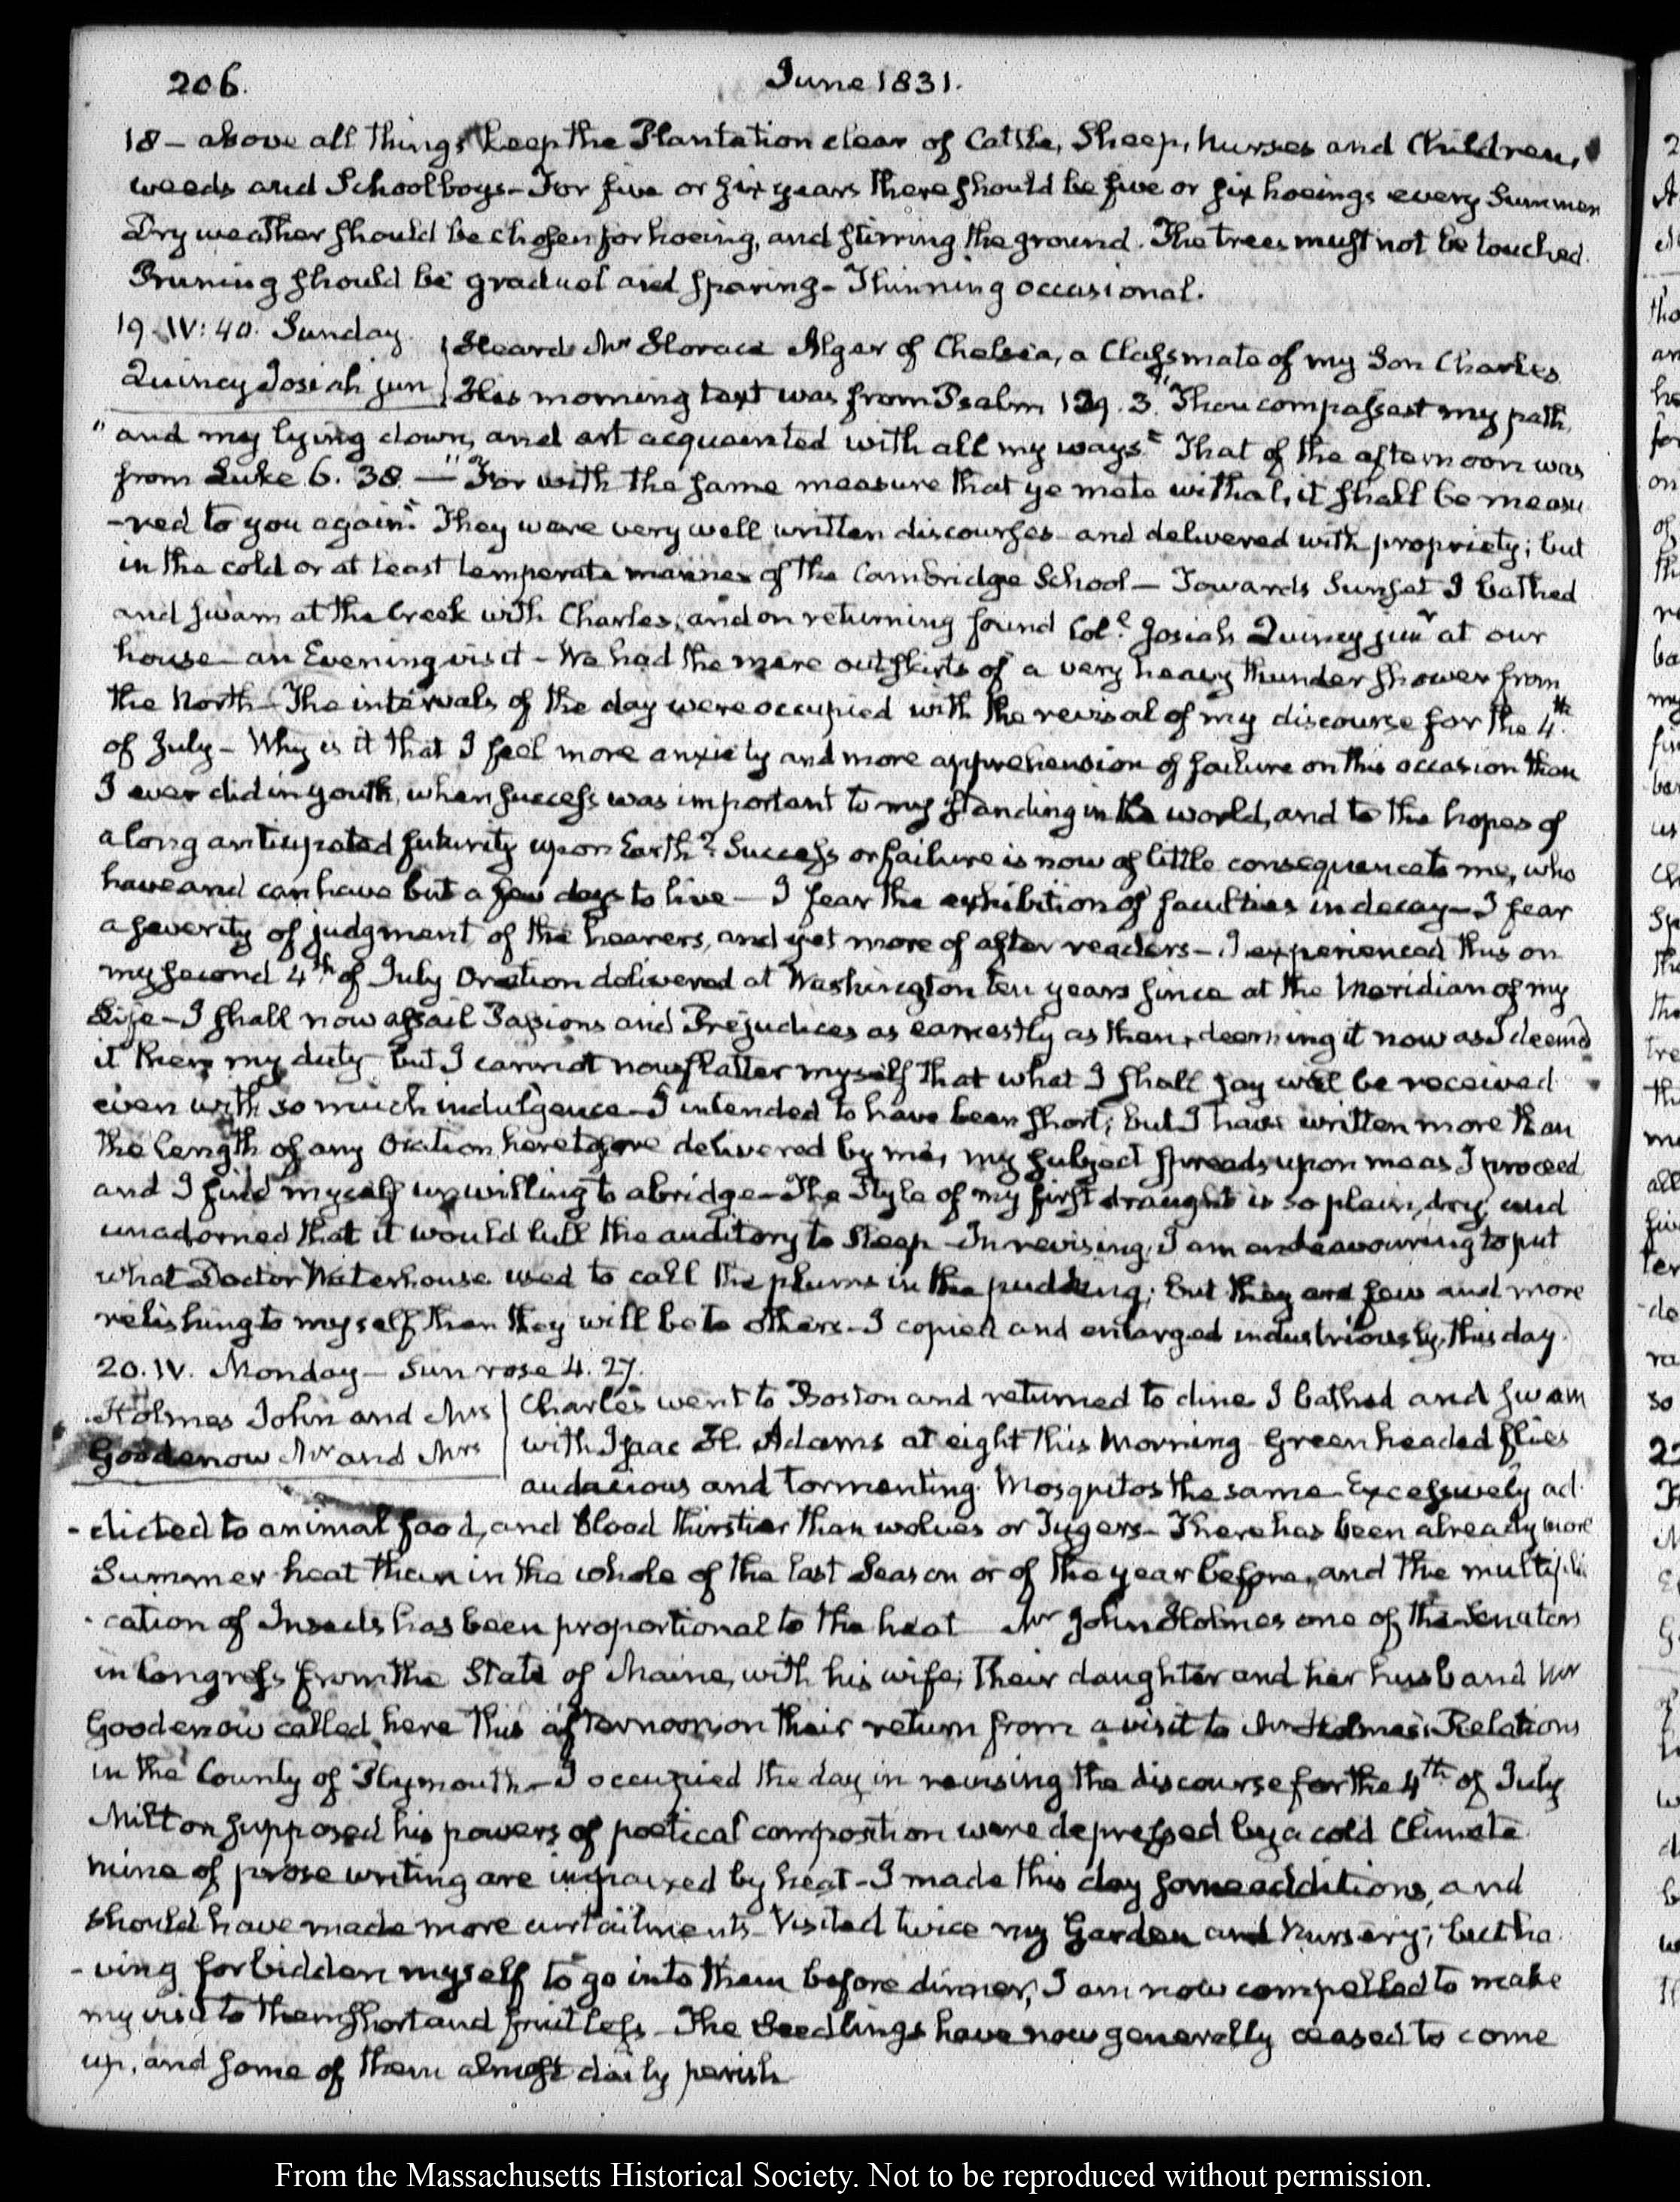 206.
June 1831.
18 – above all things keep the Plantation clear of Cattle, Sheep, Nurses and Children,
weeds and Schoolboys – For five or six years there should be five or six hoeings every Summer
Dry weather should be chosen for hoeing, and stirring the ground. The trees must not be touched.
Pruning should be gradual and sparing – Thinning occasional.
19. IV: 40. Sunday.
Quincy Josiah jun
Heard Mr Horace Alger of Chelsea, a Classmate of my Son Charles
His morning text was from Psalm 139. 3. "Thou compassest my path,
"and my lying down, and art acquainted with all my ways" That of the afternoon was
from Luke 6. 38. – "For with the same measure that ye mete withal, it shall be measu
-red to you again." They were very well written discourses and delivered with propriety; but
in the cold or at least temperate manner of the Cambridge School – Towards Sunset I bathed
and swam at the Creek with Charles, and on returning found Coll. Josiah Quincy junr at our
house – an Evening visit – We had the mere outskirts of a very heavy thunder shower from
the North – The intervals of the day were occupied with the revisal of my discourse for the 4th
of July – Why is it that I feel more anxiety and more apprehension of failure on this occasion than
I ever did in youth, when success was important to my standing in the world, and to the hopes of
a long anticipated futurity upon Earth? Success or failure is now of little consequence to me, who
have and can have but a few days to live – I fear the exhibition of faculties in decay – I fear
a severity of judgment of the hearers, and yet more of after readers – I experienced this on
my second 4th of July Oration delivered at Washington ten years since at the Meridian of my
Life – I shall now assail Passions and Prejudices as earnestly as then, deeming it now as I deem'd
it then my duty but I cannot now flatter myself that what I shall say will be received
even with so much indulgence – I intended to have been short; but I have written more than
the length of any Oration heretofore delivered by me, my subject spreads upon me as I proceed
and I find myself unwilling to abridge – The Style of my first draught is so plain, dry, and
unadorned that it would lull the auditory to Sleep – In revising, I am endeavouring to put
what Doctor Waterhouse used to call the plums in the pudding; but they are few and more
relishing to myself than they will be to others – I copied and enlarged industriously this day.
20. IV. Monday – Sun rose 4. 27.
Holmes John and Mrs
Goodenow Mr and Mrs
Charles went to Boston and returned to dine I bathed and swam
with Isaac H. Adams at eight this Morning – Green headed flies
audacious and tormenting. Mosquitos the same – Excessively ad-
-dicted to animal food, and blood thirstier than wolves or Tygers – There has been already more
Summer heat than in the whole of the last Season or of the year before, and the multipli
-cation of Insects has been proportional to the heat Mr John Holmes one of the Senators
in Congress from the State of Maine, with his wife, Their daughter and her husband Mr
Goodenow called here this afternoon on their return from a visit to Mr Holmes's Relations
in the County of Plymouth – I occupied the day in revising the discourse for the 4th of July
Milton supposed his powers of poetical composition were depressed by a cold Climate
mine of prose writing are impaired by heat – I made this day some additions, and
should have made more curtailments – Visited twice my Garden and Nursery; but ha
-ving forbidden myself to go into them before dinner, I am now compelled to make
my visit to them short and fruitless – The Seedlings have now generally ceased to come
up, and some of them almost daily perish
From the Massachusetts Historical Society. Not to be reproduced without permission.